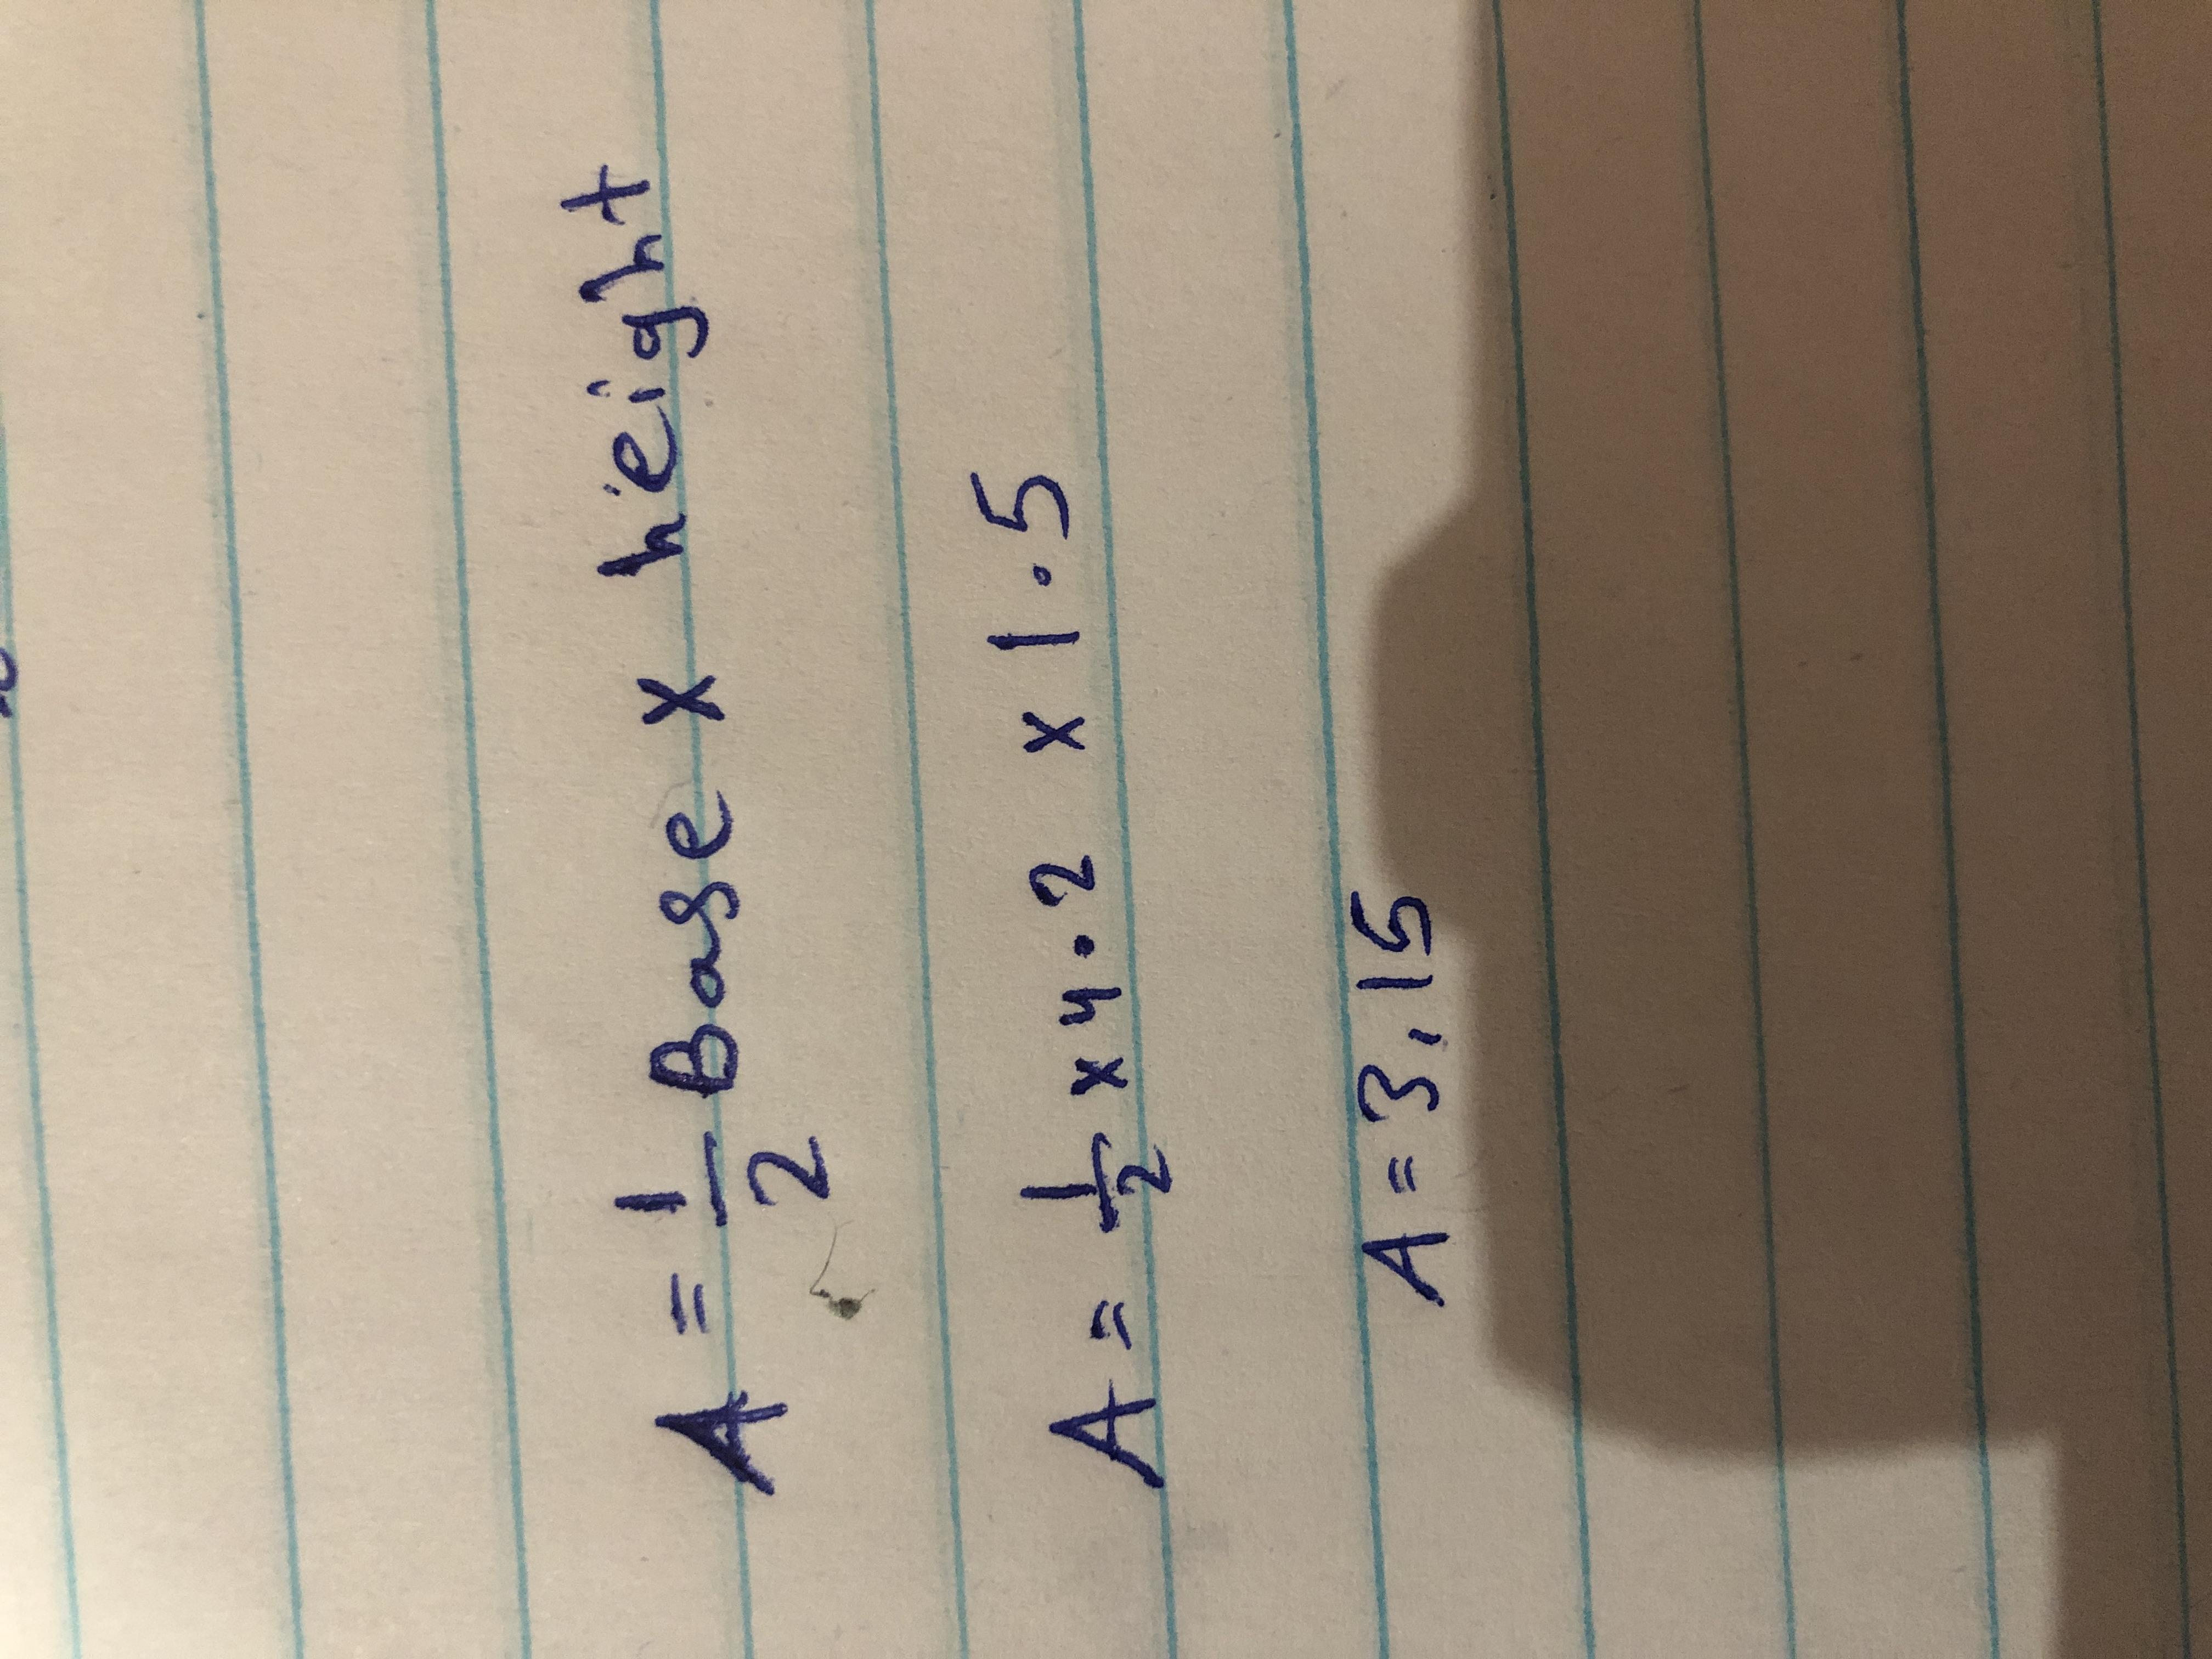 A = 1/2 Base x height
A = 1/2 x 4.2 x 1.5
A = 3.15